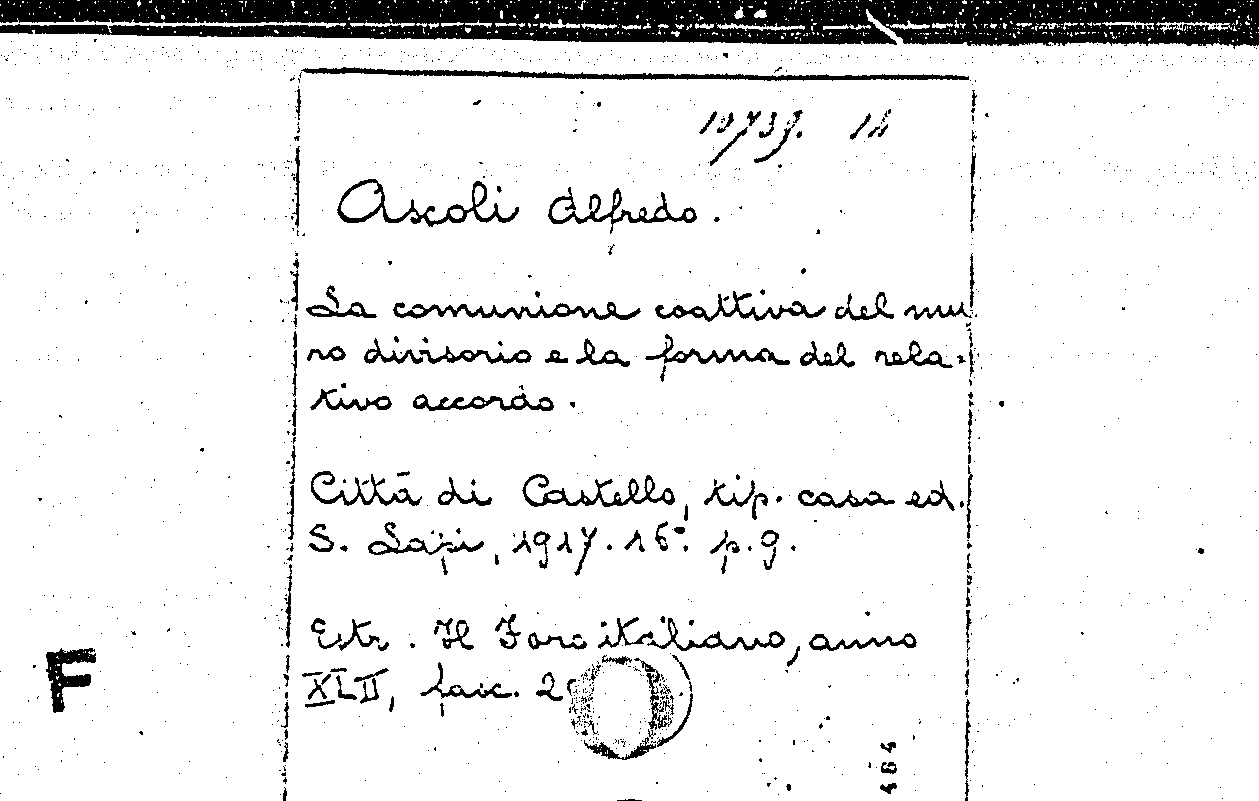 10739. 14
Ascoli Alfredo.
La comunione coattiva del mu
ro divisorio e la forma del rela-
tivo accordo.
Città di Castello, tip. casa ed.
S. Lapi, 1917. 16°. p. 9.
Estr. Il Foro italiano, anno
XLII, fasc.
F
484